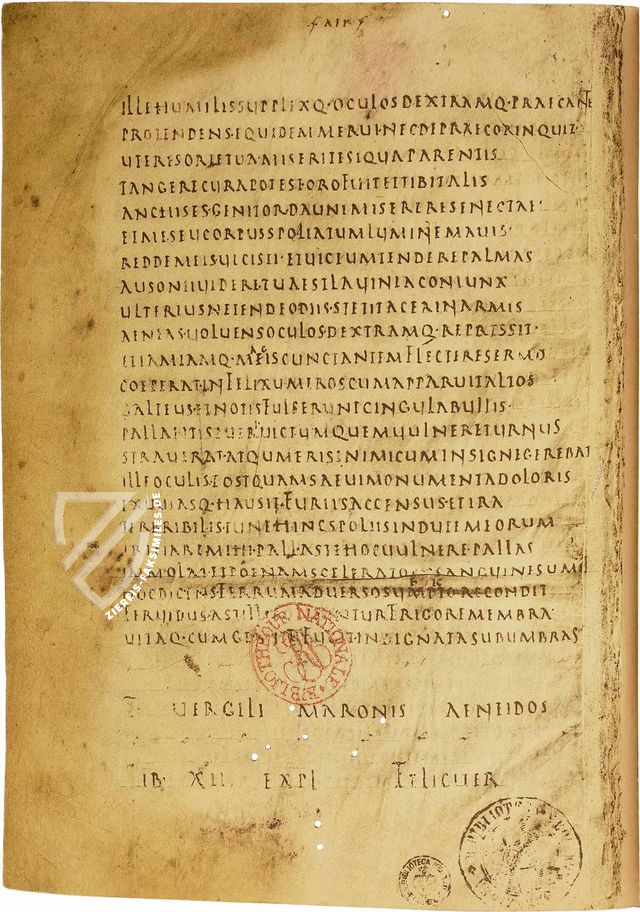 ILLEHUMILISSUPPLEXQ·OCULOSDEXTRAMQ·PRAECANTE
PROTENDENS·EQUIDEMMERUI·NECDEPRAECORINQUIT
UTERESORTETUAMISERITESIQUAPARENTIS
TANGERECURAPOTESTOROFUITETTIBITALIS
ANCHISES·GENITORDAUNIMISERERESENECTAE·
ETMESEUCORPUSSPOLIATUMLUMINEMAUIS·
REDDEMEISUICISTI·ETUICTUMTENDEREPALMAS
AUSONIIUIDERETUAESTLAUINIACONIUNX
ULTERIUSNETENDEODIIS·STETITACERINARMIS
AENEAS·UOLUENSOCULOS·DEXTRAMQ·REPRESSIT·
ETIAMIAMQ·MAGISCUNCTANTEMFLECTERESERMO
COEPERATINFELIXUMEROSCUMAPPARUITALTOS
BALTEUSETNOTISFULSERUNTCINGULABULLIS·
PALLANTISPUERIUICTUMQUEMUULNERETURNUS
STRAUERATATQUMERISINIMICUMINSIGNEGEREBAT
ILLEOCULISPOSTQUAMSAEUIMONUMENTADOLORIS
EXUUIASQ·HAUSIT·FURIISACCENSUS·ETIRA
TERRIBILIS·TUNEHINCSPOLIISINDUTEMEORUM
ERIPIAREMIHI·PALLASTEHOCUULNERE·PALLAS
IMMOLATETPOENAMSCELERATOEXSANGUINESUMIT
HOCDICENSFERRUMADUERSOSUBPECTORECONDIT
FERUIDUS·ASTILLISOLUUNTURFRIGOREMEMBRA
UITAQ·CUMGEMITUFUGITINDIGNATASUBUMBRAS
P UERGILI MARONIS AENEIDOS
LIB XII EXPL FELICITER
BIBLIOTHEQUE NATIONALE
ZIEREIS-FAKSIMILES.DE